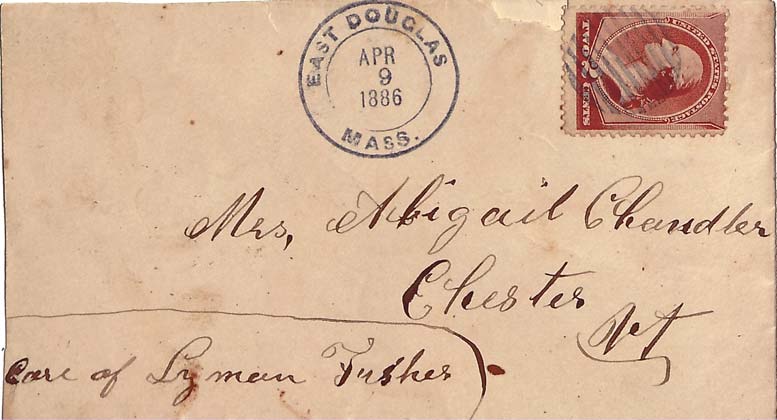 EAST DOUGLAS
APR
9
1886
MASS.
UNITED STATES POSTAGE
TWO CENTS
Mrs, Abigail Chandler
Chester
Vt
Care of Lyman